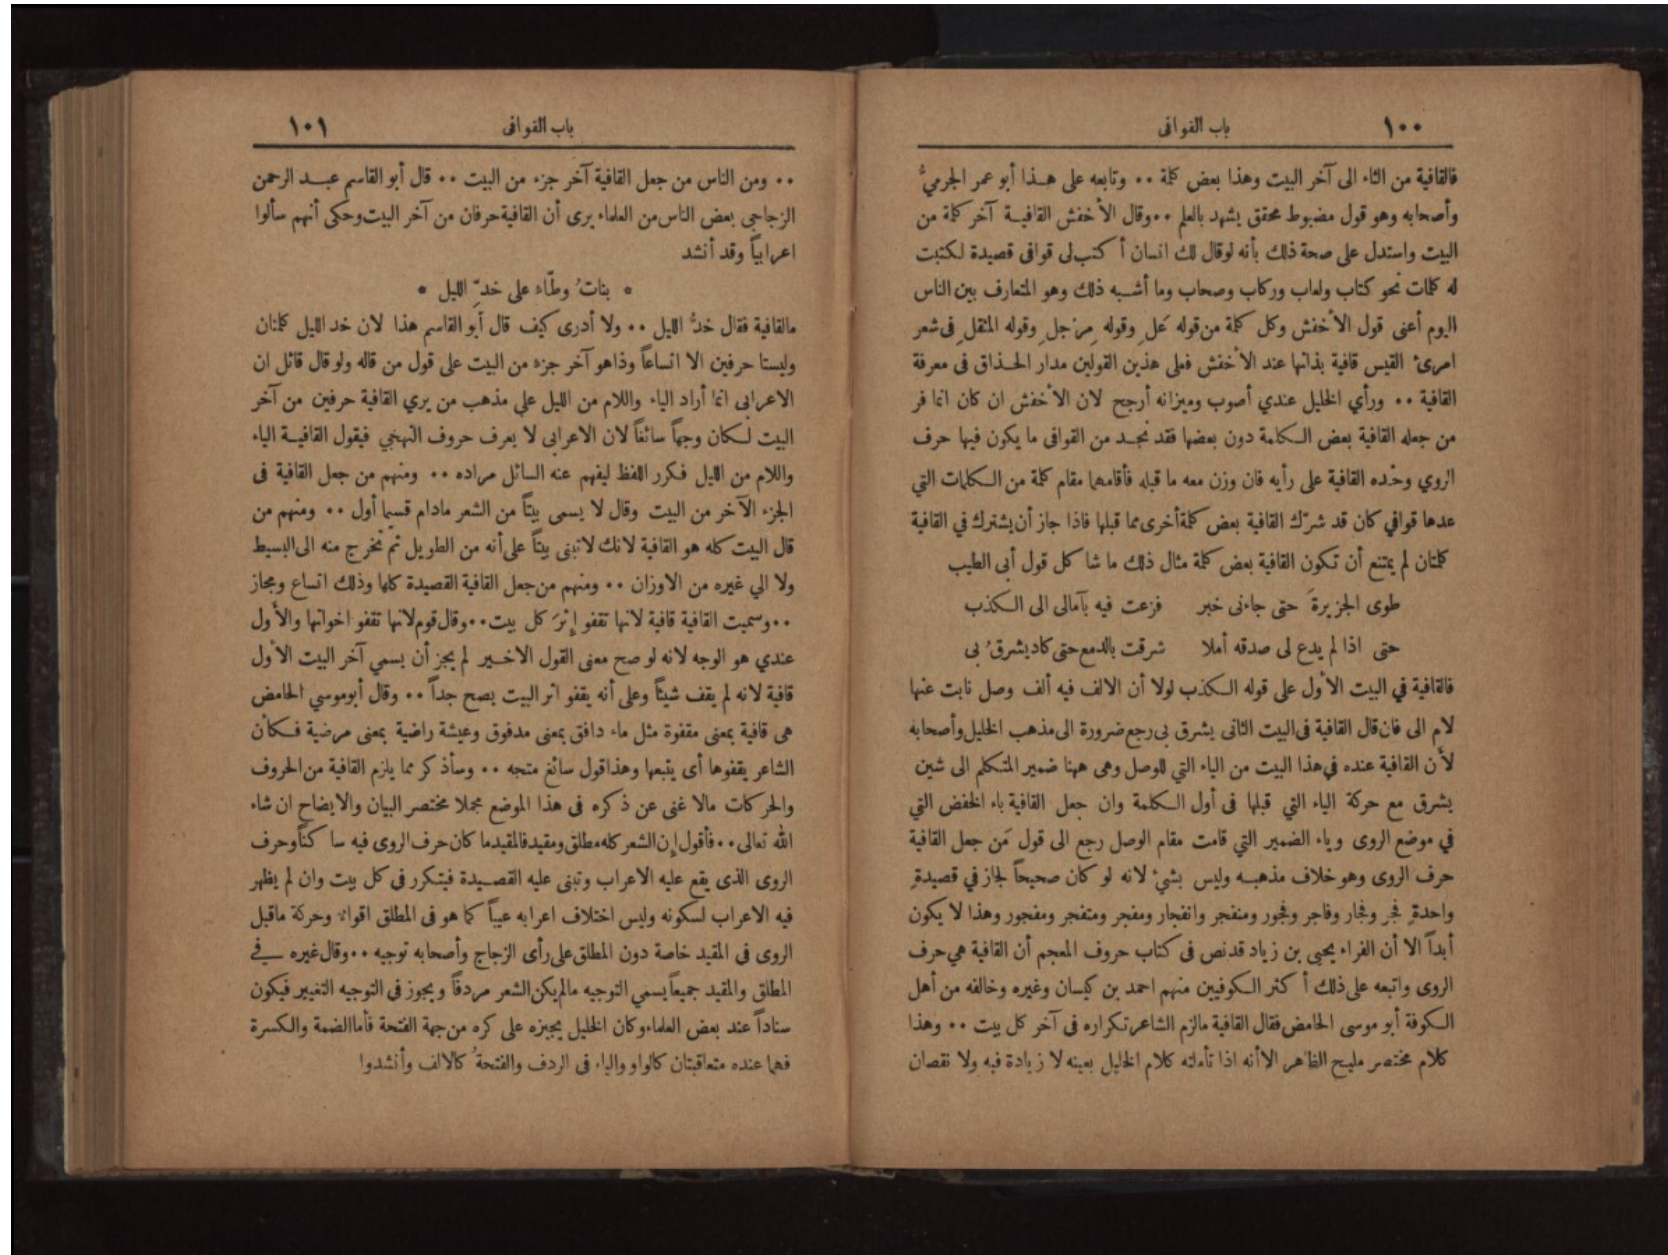 ١٠٠ باب القوافى
فالقافية من الثاء الى آخر البيت وهذا بعض كلمة ٠٠ وتابعه على هـذا أبو عمر الجرميُّ
وأصحابه وهو قول مضبوط محقق يشهد بالعلم ٠٠وقال الأخفش القافيـة آخر كلمة من
البيت واستدل على صحة ذلك بأنه لوقال لك انسان أكتب لى قوافى قصيدة لكتبت
له كلمات نحو كتاب ولعاب وركاب وصحاب وما أشـبه ذلك وهو المتعارف بين الناس
اليوم أعنى قول الأخفش وكل كلمة من قوله عَلِ وقوله مِرْجلِ وقوله المثقلِ فى شعر
امرئ القيس قافية بذاتها عند الأخفش فعلى هذين القولين مدار الحـذاق فى معرفة
القافية ٠٠ ورأي الخليل عندي أصوب وميزانه أرجح لان الأخفش ان كان انما فر
من جعله القافية بعض الـكلمة دون بعضها فقد نجـد من القوافى ما يكون فيها حرف
الروي وحده القافية على رأيه فان وزن معه ما قبله فأقامهما مقام كلمة من الـكلمات التي
عدها قوافي كان قد شرّك القافية بعض كلمة أخرى مما قبلها فاذا جاز أن يشترك في القافية
كلمتان لم يمتنع أن تـكون القافية بعض كلمة مثال ذلك ما شا كل قول أبى الطيب
طوى الجزيرةَ حتى جاءنى خبر فزعت فيه بآمالى الى الـكذب
حتى اذا لم يدع لى صدقه أملا شرقت بالدمع حتى كاد يشرقُ بى
فالقافية في البيت الأول على قوله الـكذب لولا أن الالف فيه ألف وصل نابت عنها
لام الى فان قال القافية فى البيت الثانى يشرق بى رجع ضرورة الى مذهب الخليل وأصحابه
لأن القافية عنده في هذا البيت من الياء التي للوصل وهى ههنا ضمير المتـكلم الى شين
يشرق مع حركة الياء التي قبلها فى أول الـكلمة وان جعل القافية باء الخفض التي
في موضع الروى وياء الضمير التي قامت مقام الوصل رجع الى قول مَن جعل القافية
حرف الروى وهو خلاف مذهبـه وليس بشئ لانه لو كان صحيحاً لجاز في قصيدةٍ
واحدةٍ فجر وفجار وفاجر وفجور ومنفجر وانفجار ومفجر ومتفجر ومفجور وهذا لا يكون
أبداً الا أن الفراء يحيى بن زياد قد نص فى كتاب حروف المعجم أن القافية هي حرف
الروى واتبعه على ذلك أكثر الـكوفيين منهم احمد بن كيسان وغيره وخالفه من أهل
الـكوفة أبو موسى الحامض فقال القافية مالزم الشاعر تـكراره فى آخر كل بيت ٠٠ وهذا
كلام مختصر مليح الظاهر الا أنه اذا تأملته كلام الخليل بعينه لا زيادة فيه ولا نقصان
باب القوافى ١٠١
٠٠ ومن الناس من جعل القافية آخر جزء من البيت ٠٠ قال أبو القاسم عبـد الرحمن
الزجاجي بعض الناس من العلماء يرى أن القافية حرفان من آخر البيت وحكى أنهم سألوا
اعرابياً وقد أنشد
* بناتُ وطّاء على خدِّ الليل *
مالقافية فقال خدُّ الليل ٠٠ ولا أدرى كيف قال أبو القاسم هذا لان خد الليل كلمتان
وليستا حرفين الا اتساعاً وذاهو آخر جزء من البيت على قول من قاله ولو قال قائل ان
الاعرابى انما أراد الياء واللام من الليل علي مذهب من يري القافية حرفين من آخر
البيت لـكان وجهاً سائغاً لان الاعرابى لا يعرف حروف التهجي فيقول القافيـة الياء
واللام من الليل فـكرر اللفظ ليفهم عنه السائل مراده ٠٠ ومنهم من جعل القافية فى
الجزء الآخر من البيت وقال لا يسمى بيتاً من الشعر مادام قسيما أول ٠٠ ومنهم من
قال البيت كله هو القافية لانك لاتبنى بيتاً على أنه من الطويل ثم تخرج منه الى البسيط
ولا الي غيره من الاوزان ٠٠ ومنهم من جعل القافية القصيدة كلها وذلك اتساع ومجاز
٠٠وسميت القافية قافية لانها تقفو إثرَ كل بيت٠٠وقال قوم لانها تقفو اخواتها والأول
عندي هو الوجه لانه لو صح معنى القول الاخـير لم يجز أن يسمي آخر البيت الأول
قافية لانه لم يقف شيئاً وعلى أنه يقفو اثر البيت يصح جداً ٠٠ وقال أبو موسي الحامض
هى قافية بمعنى مقفوة مثل ماء دافق بمعنى مدفوق وعيشة راضية بمعنى مرضية فـكأن
الشاعر يقفوها أى يتبعها وهذا قول سائغ متجه ٠٠ وسأذكر مما يلزم القافية من الحروف
والحركات مالا غنى عن ذكره فى هذا الموضع مجملا مختصر البيان والايضاح ان شاء
الله تعالى٠٠فأقول إن الشعر كله مطلق ومقيد فالمقيد ما كان حرف الروى فيه سا كناً وحرف
الروى الذى يقع عليه الاعراب وتبنى عليه القصـيدة فيتكرر فى كل بيت وان لم يظهر
فيه الاعراب لسكونه وليس اختلاف اعرابه عيباً كما هو فى المطلق اقواء وحركة ماقبل
الروى فى المقيد خاصة دون المطلق على رأى الزجاج وأصحابه توجيه ٠٠وقال غيره في
المطلق والمقيد جميعاً يسمي التوجيه مالم يكن الشعر مردفاً ويجوز فى التوجيه التغيير فيكون
سناداً عند بعض العلماء وكان الخليل يجيزه على كره من جهة الفتحة فأما الضمة والـكسرة
فهما عنده متعاقبتان كالواو والياء فى الردف والفتحةُ كالالف وأنشدوا